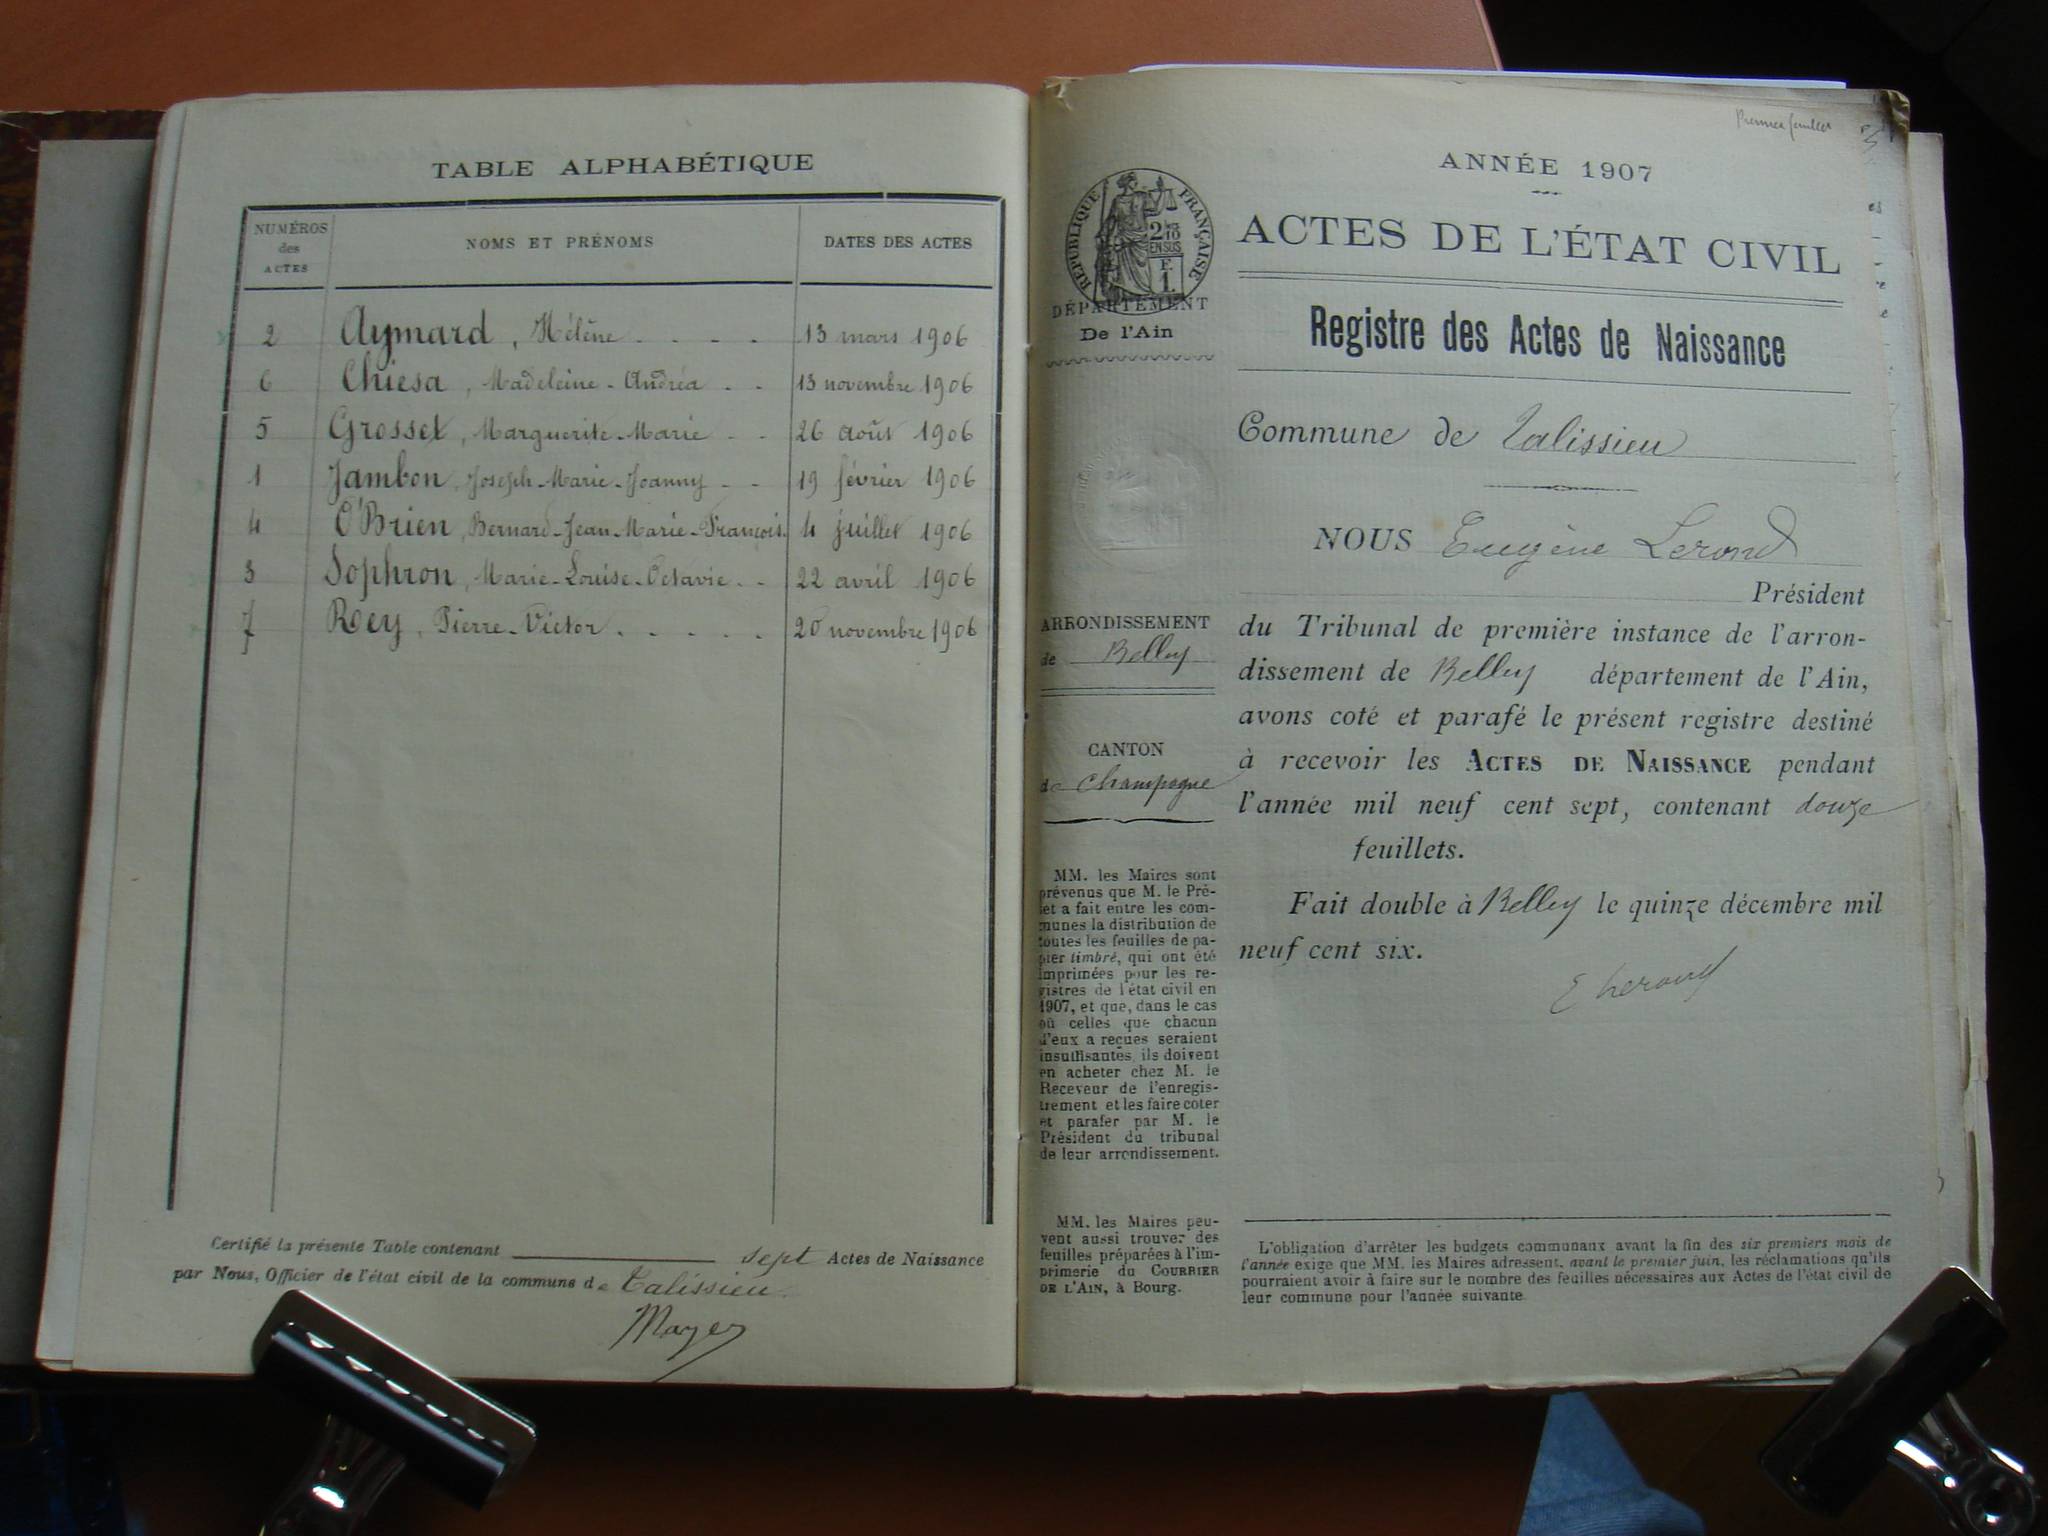 TABLE ALPHABÉTIQUE
NUMÉROS des ACTES NOMS ET PRÉNOMS DATES DES ACTES
2 Aymard, Hélène 13 mars 1906
6 Chiesa, Madeleine-Andréa 13 novembre 1906
5 Grosset, Marguerite-Marie 26 août 1906
1 Jambon, Joseph-Marie-Joanny 19 février 1906
4 O'Brien, Bernard-Jean-Marie-François 4 juillet 1906
3 Sophron, Marie-Louise-Octavie 22 avril 1906
7 Rey, Pierre-Victor 20 novembre 1906
Certifié la présente Table contenant sept Actes de Naissance
par Nous, Officier de l'état civil de la commune de Talissieu
Mayer
Premier feuillet
ANNÉE 1907
ACTES DE L'ÉTAT CIVIL
Registre des Actes de Naissance
RÉPUBLIQUE FRANÇAISE
2/10
EN SUS
F.
1.
DÉPARTEMENT
De l'Ain
Commune de Talissieu
NOUS Eugène Lerond
Président
du Tribunal de première instance de l'arron-
dissement de Belley département de l'Ain,
avons coté et parafé le présent registre destiné
à recevoir les ACTES DE NAISSANCE pendant
l'année mil neuf cent sept, contenant douze
feuillets.
Fait double à Belley le quinze décembre mil
neuf cent six.
E Lerond
ARRONDISSEMENT
de Belley
CANTON
de Champagne
MM. les Maires sont
prévenus que M. le Pré-
fet a fait entre les com-
munes la distribution de
toutes les feuilles de pa-
pier timbré, qui ont été
imprimées pour les re-
gistres de l'état civil en
1907, et que, dans le cas
où celles que chacun
d'eux a reçues seraient
insuffisantes, ils doivent
en acheter chez M. le
Receveur de l'enregis-
trement et les faire coter
et parafer par M. le
Président du tribunal
de leur arrondissement.
MM. les Maires peu-
vent aussi trouver des
feuilles préparées à l'im-
primerie du COURRIER
DE L'AIN, à Bourg.
L'obligation d'arrêter les budgets communaux avant la fin des six premiers mois de
l'année exige que MM. les Maires adressent, avant le premier juin, les réclamations qu'ils
pourraient avoir à faire sur le nombre des feuilles nécessaires aux Actes de l'état civil de
leur commune pour l'année suivante